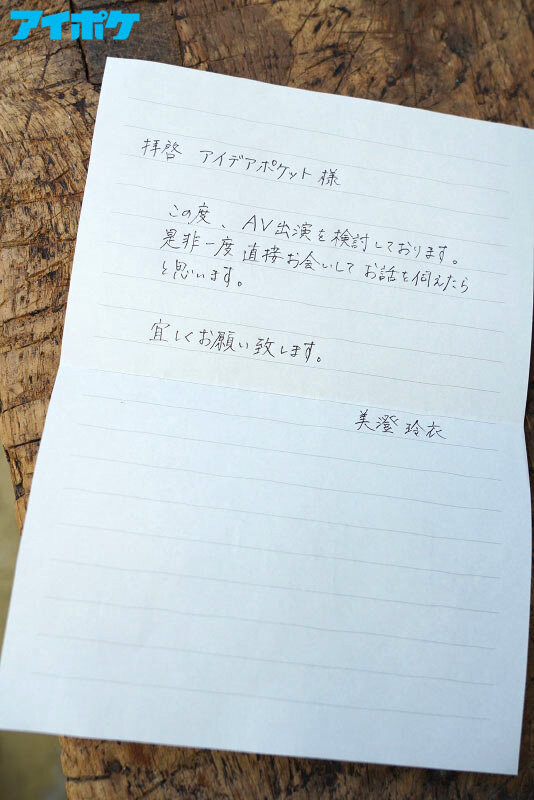 アイポケ
拝啓 アイデアポケット様
この度、AV出演を検討しております。
是非一度直接お会いしてお話を伺えたら
と思います。
宜しくお願い致します。
美澄玲衣